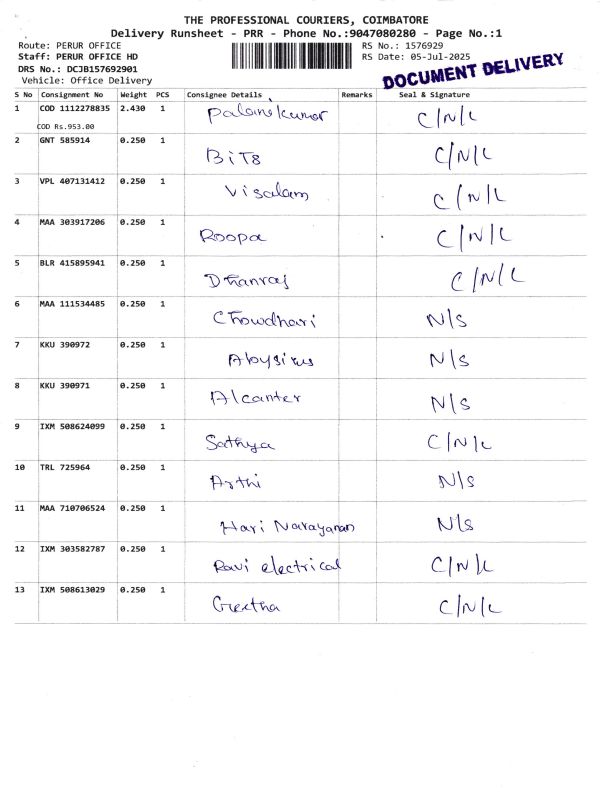 THE PROFESSIONAL COURIERS, COIMBATORE
Delivery Runsheet - PRR - Phone No.:9047080280 - Page No.:1
Route: PERUR OFFICE RS No.: 1576929
Staff: PERUR OFFICE HD RS Date: 05-Jul-2025
DRS No.: DCJB157692901
Vehicle: Office Delivery
DOCUMENT DELIVERY
S No Consignment No Weight PCS Consignee Details Remarks Seal & Signature
1 COD 1112278835 2.430 1 Palanikumar C/N/L
COD Rs.953.00
2 GNT 585914 0.250 1 BITS C/N/L
3 VPL 407131412 0.250 1 Visalam C/N/L
4 MAA 303917206 0.250 1 Roopa C/N/L
5 BLR 415895941 0.250 1 Dhanraj C/N/L
6 MAA 111534485 0.250 1 Chowdhari N/S
7 KKU 390972 0.250 1 Aloysius N/S
8 KKU 390971 0.250 1 Alcanter N/S
9 IXM 508624099 0.250 1 Sathya C/N/L
10 TRL 725964 0.250 1 Arthi N/S
11 MAA 710706524 0.250 1 Hari Narayanan N/S
12 IXM 303582787 0.250 1 Ravi electrical C/N/L
13 IXM 508613029 0.250 1 Geetha C/N/L